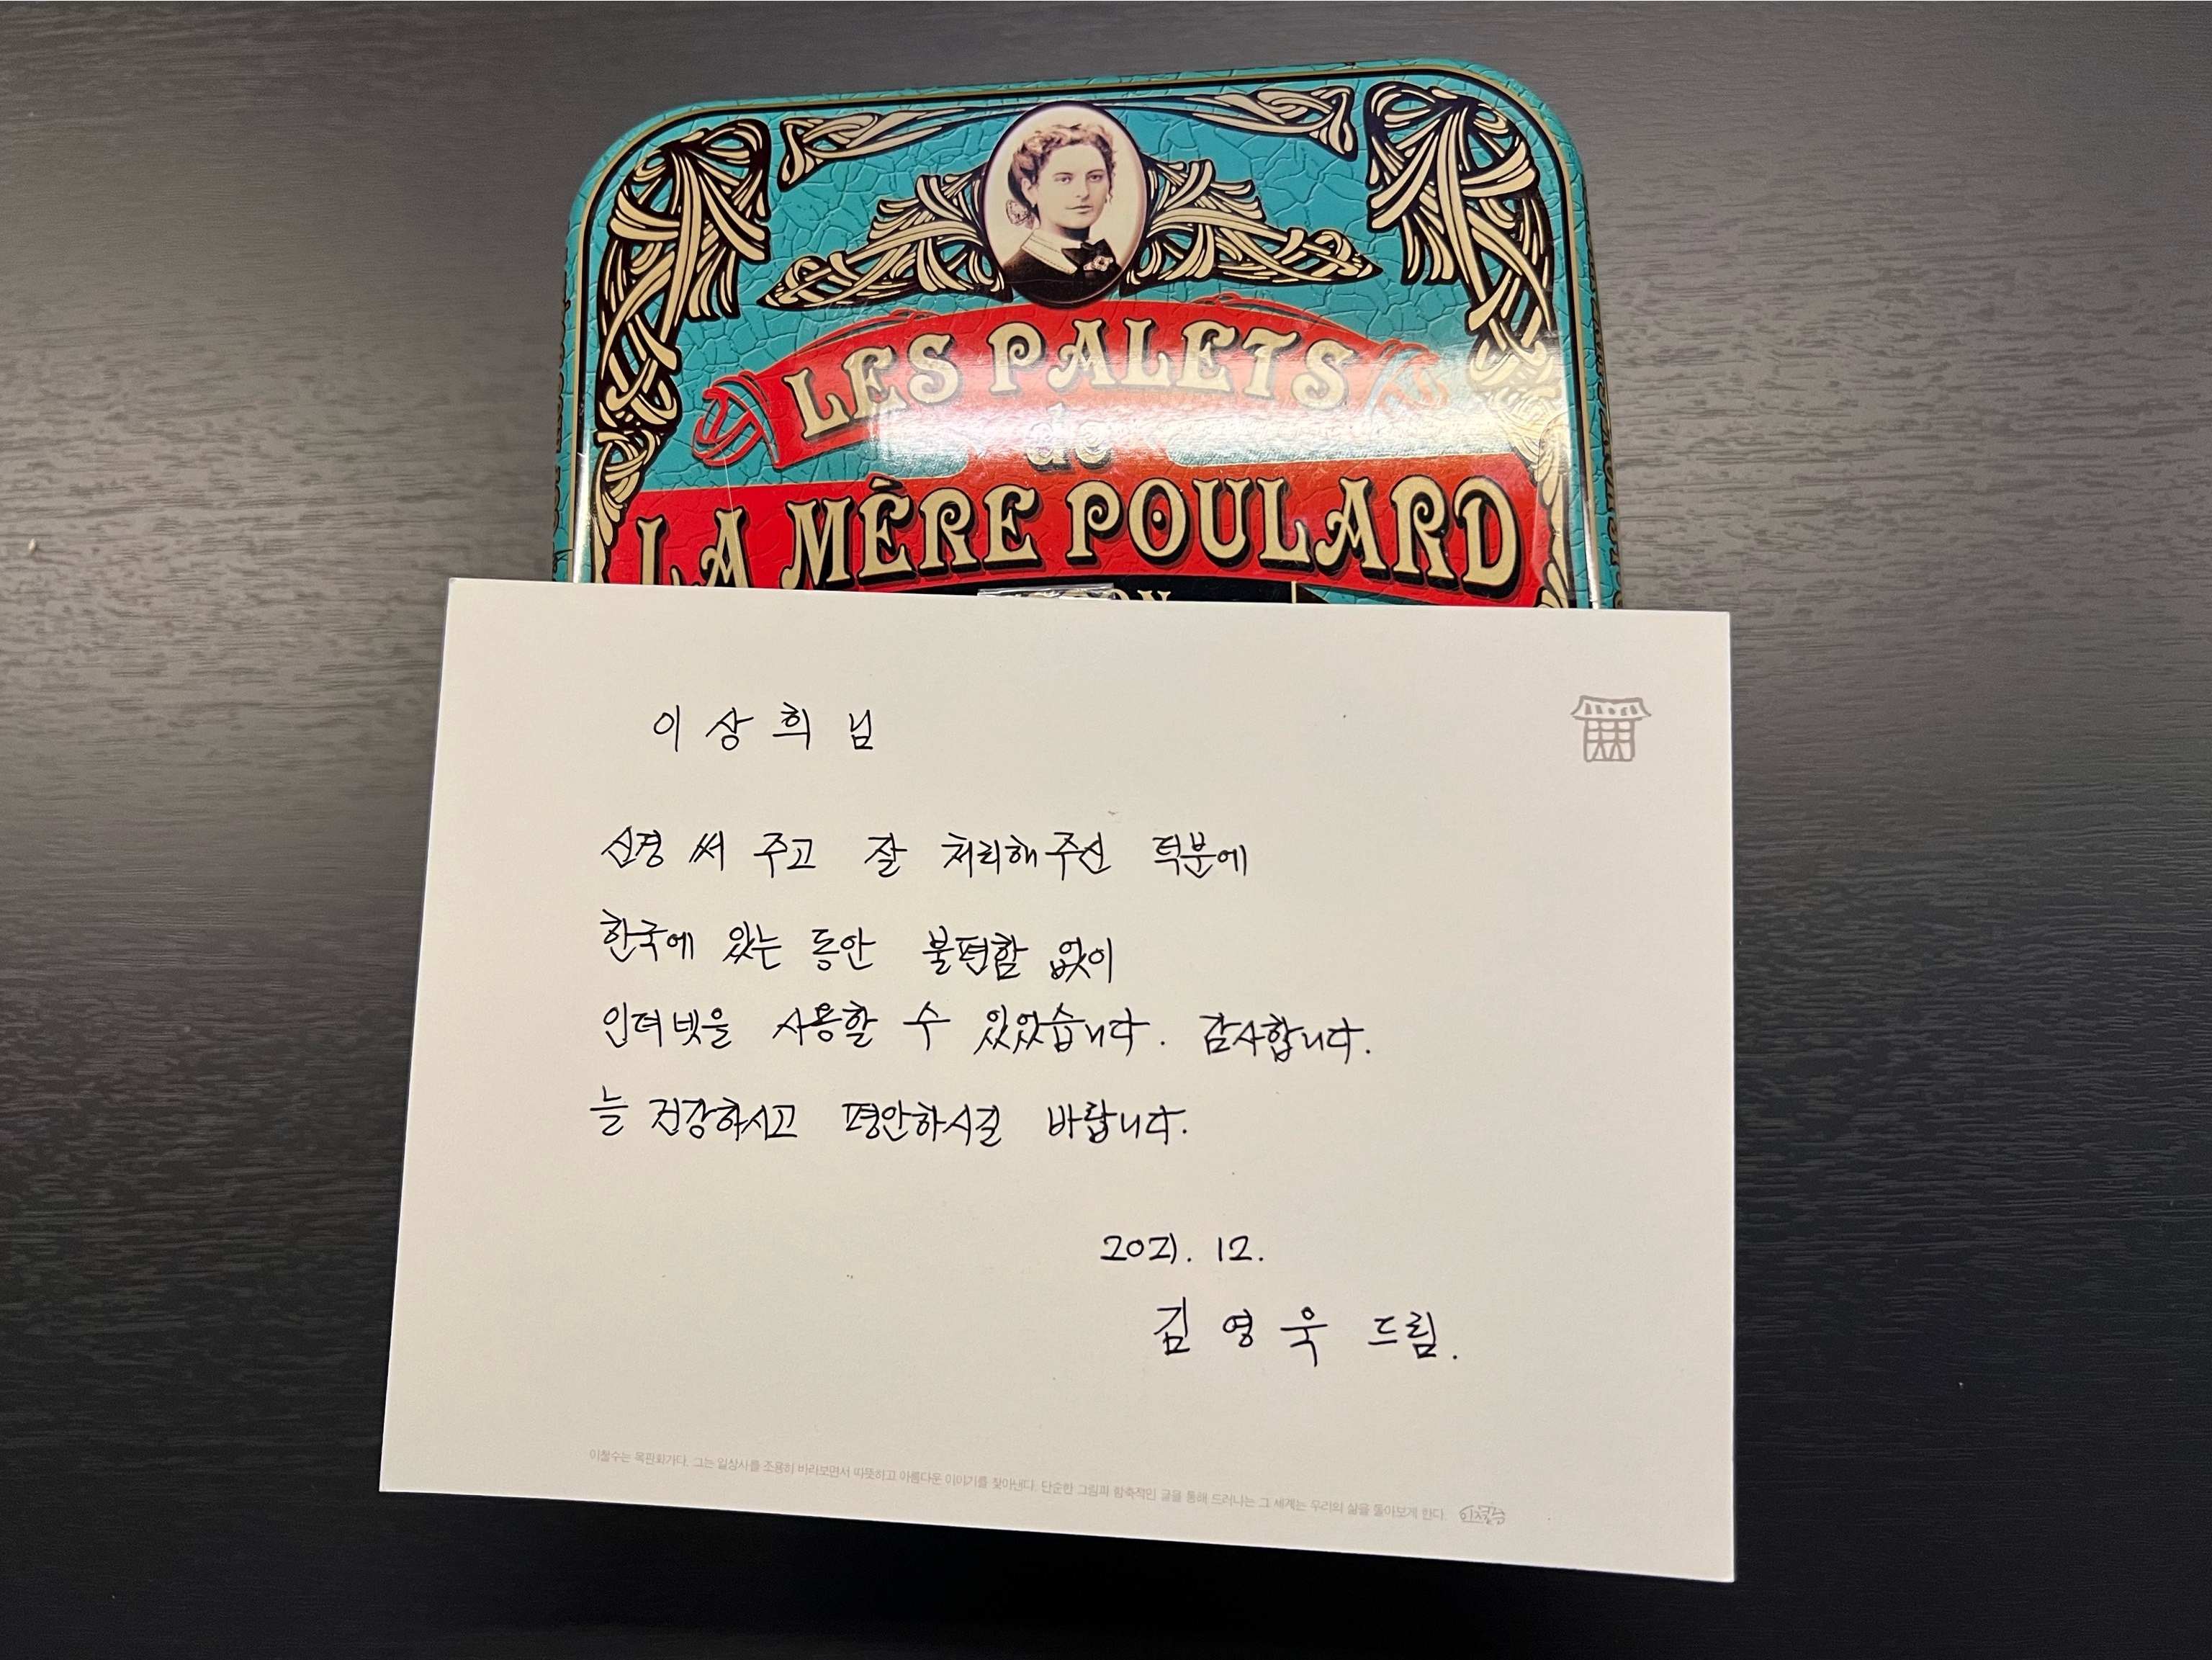 LES PALETS
de
LA MÈRE POULARD
이상희 님
신경 써 주고 잘 처리해주신 덕분에
한국에 있는 동안 불편함 없이
인터넷을 사용할 수 있었습니다. 감사합니다.
늘 건강하시고 평안하시길 바랍니다.
2021. 12.
김영욱 드림.
이철수는 목판화가다. 그는 일상사를 조용히 바라보면서 따뜻하고 아름다운 이야기를 찾아낸다. 단순한 그림과 함축적인 글을 통해 드러나는 그 세계는 우리의 삶을 돌아보게 한다. 이철수